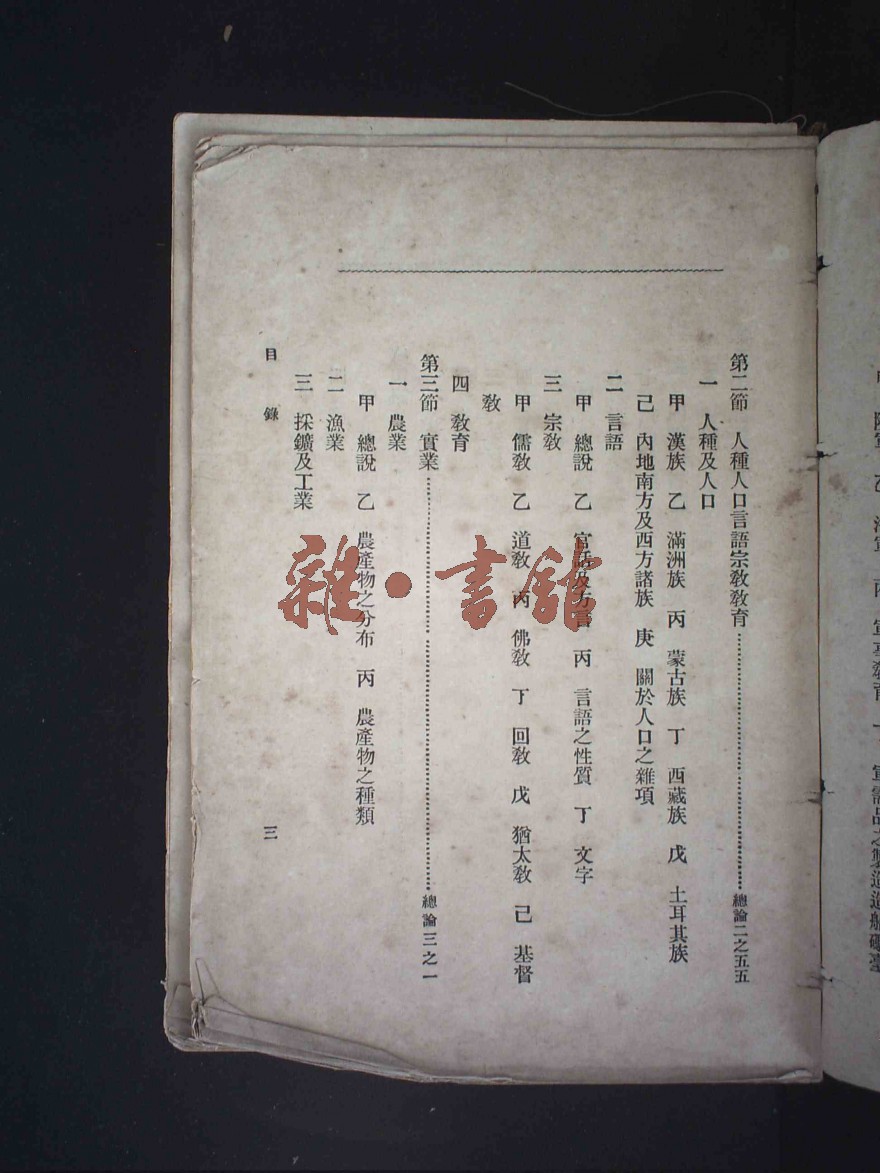 第二節　人種人口言語宗敎敎育……………………總論二之五五
一　人種及人口
甲　漢族　乙　滿洲族　丙　蒙古族　丁　西藏族　戊　土耳其族
己　內地南方及西方諸族　庚　關於人口之雜項
二　言語
甲　總說　乙　官話及方言　丙　言語之性質　丁　文字
三　宗敎
甲　儒敎　乙　道敎　丙　佛敎　丁　回敎　戊　猶太敎　己　基督
敎
四　敎育
第三節　實業……………………總論三之一
一　農業
甲　總說　乙　農產物之分布　丙　農產物之種類
二　漁業
三　採鑛及工業
目　錄　三
雜·書館